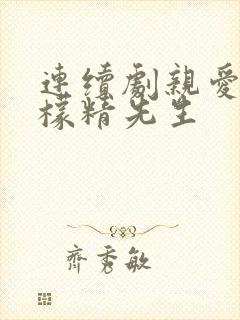 連續劇親愛
檬精先生
齊秀敏